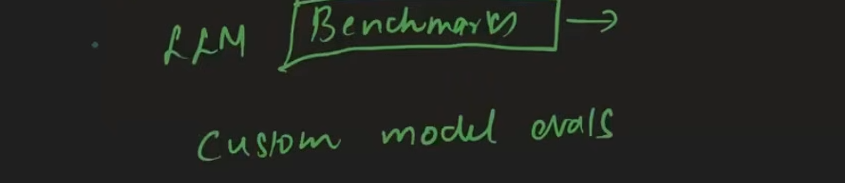 LLM Benchmarks →
Custom model evals